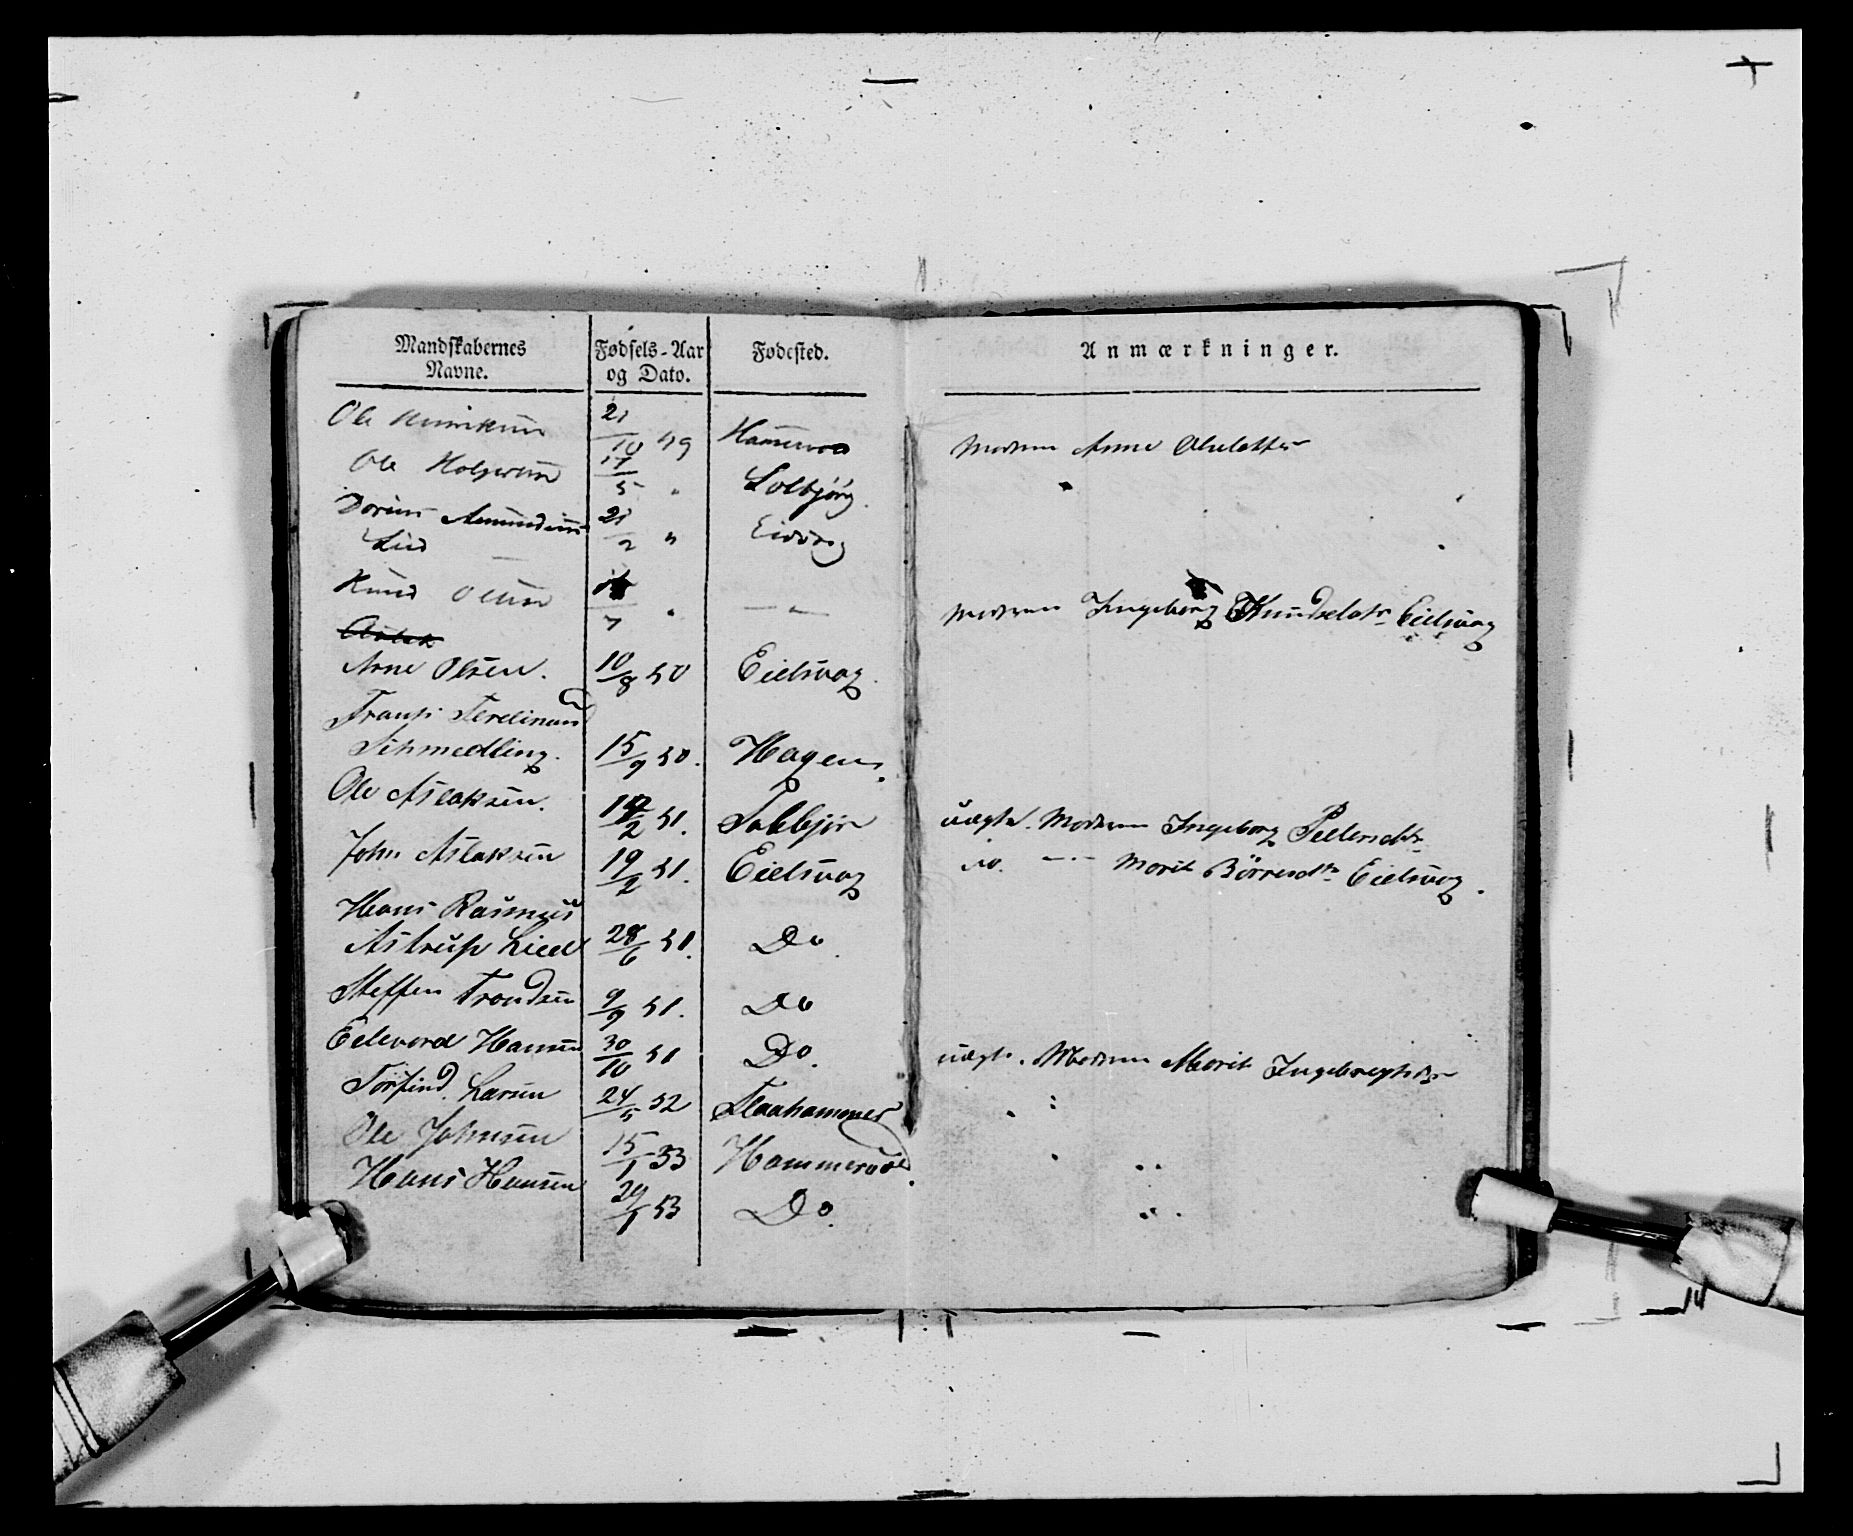 Mandskabernes Navne. Fødsels-Aar og Dato. Fødested. Anmærkninger.
Ole 21/10 49 Moderen Anne Olsdatter
Ole Holgersen 17/5 " Solbjörg.
Amundsen 21/2 " Eidsvag
Lied
Knud Olsen /7 " — " — Moderen Ingeborg Knudsdatr Eielsvag
Aslak
Arne Olsen. 10/8 50 Eielsvag.
Frants Ferdinand
Schmedling. 15/9 50. Hagen.
Ole Aslaksen. /2 51. uægte. Moderen Ingeborg Pedersdtr
John Aslaksen 19/2 51. Eielsvag do. — " — Morit Börresdtr Eielsvag.
Hans Rasmus
Astrup Lied 28/6 51. Do.
Steffen Trondsen 9/9 51. Do
Edevard Hansen 30/10 51 Do. uægte. Moderen Morit Ingebregtsdtr
Torfind. Larsen 24/5 52 Flaahammer
Ole Johnsen 15/1 53 Hammervold.
Hans Hansen 29/1 53 Do.
14